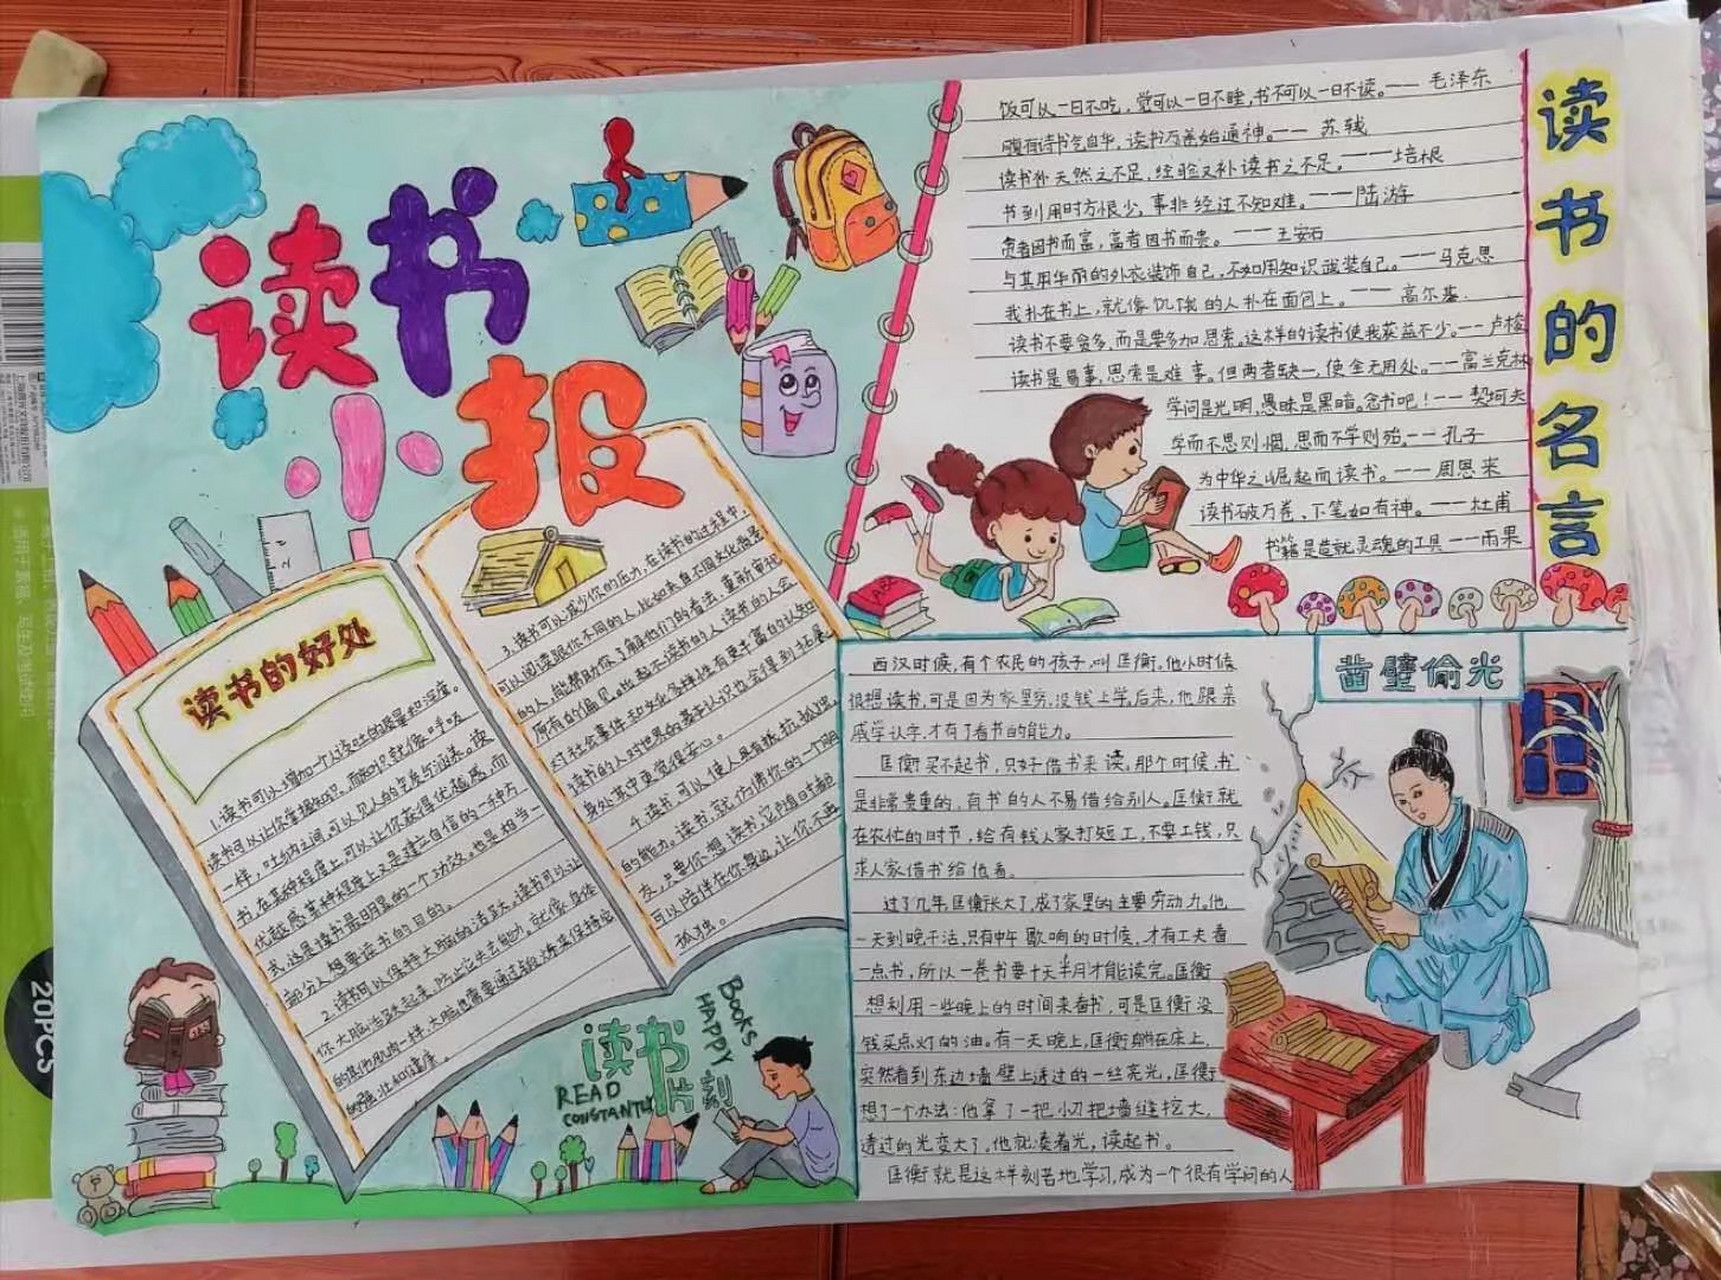 读书
小报
读书的好处
1.读书可以增加一个人谈吐的质量和深度。
读书可以让你掌握知识。而知识就像呼吸
一样,吐纳之间,可以见人的气质与涵养。读
书,在某种程度上,可以让你获得优越感,而
优越感某种程度上又是建立自信的一种方
式,这是读书最明显的一个功效。也是相当一
部分人想要读书的目的。
2.读书可以保持大脑的活跃。读书可以让
你大脑活跃起来,防止它失去能力。就像身体
的其他肌肉一样,大脑也需要通过锻炼来保持它
的强壮和健康。
3.读书可以减少你的压力,在读书的过程中,
可以阅读跟你不同的人,比如来自不同文化背景
的人,能帮助你了解他们的看法,重新审视
原有的偏见。比起不读书的人读书的人会
对社会事件和文化多样性有更丰富的认知
读书的人对世界的基本认识也会得到拓展
身处其中更觉得安心。
4.读书,可以使人具有抵抗孤独
的能力。读书,就仿佛你的一个朋
友,只要你想读书,它随时都
可以陪伴在你身边,让你不再
孤独。
读书
片刻
READ
CONSTANTLY
Books
HAPPY
读书的名言
饭可以一日不吃,觉可以一日不睡,书不可以一日不读。——毛泽东
腹有诗书气自华,读书万卷始通神。——苏轼
读书补天然之不足,经验又补读书之不足。——培根
书到用时方恨少,事非经过不知难。——陆游
贫者因书而富,富者因书而贵。——王安石
与其用华丽的外衣装饰自己,不如用知识武装自己。——马克思
我扑在书上,就像饥饿的人扑在面包上。——高尔基.
读书不要贪多,而是要多加思索。这样的读书使我获益不少。——卢梭
读书是易事,思索是难事。但两者缺一,便全无用处。——富兰克林
学问是光明,愚昧是黑暗。念书吧!——契诃夫
学而不思则惘,思而不学则殆。——孔子
为中华之崛起而读书。——周恩来
读书破万卷、下笔如有神。——杜甫
书籍是造就灵魂的工具——雨果
ABC
凿壁偷光
西汉时候,有个农民的孩子,叫匡衡。他小时候
很想读书,可是因为家里穷,没钱上学。后来,他跟亲
戚学认字,才有了看书的能力。
匡衡买不起书,只好借书来读。那个时候,书
是非常贵重的,有书的人不易借给别人。匡衡就
在农忙的时节,给有钱人家打短工,不要工钱,只
求人家借书给他看。
过了几年,匡衡长大了,成了家里的主要劳动力。他
一天到晚干活,只有中午歇响的时候,才有工夫看
一点书,所以一卷书要十天半月才能读完。匡衡
想利用一些晚上的时间来看书,可是匡衡没
钱买点灯的油。有一天晚上,匡衡躺在床上,
突然看到东边墙壁上透过的一丝亮光,匡衡
想了一个办法:他拿了一把小刀把墙缝挖大,
透过的光变大了。他就凑着光,读起书。
匡衡就是这样刻苦地学习,成为一个很有学问的人
20PCS